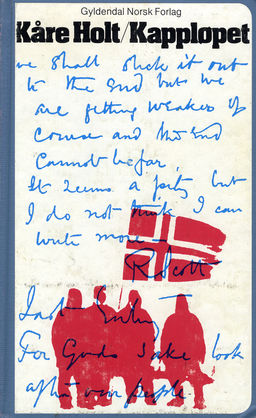 Gyldendal Norsk Forlag
Kåre Holt/Kappløpet
we shall stick it out
to the end but we
are getting weaker of
course and the end
cannot be far.
It seems a pity but
I do not think I can
write more —
R Scott
Last Entry
For Gods sake look
after our people